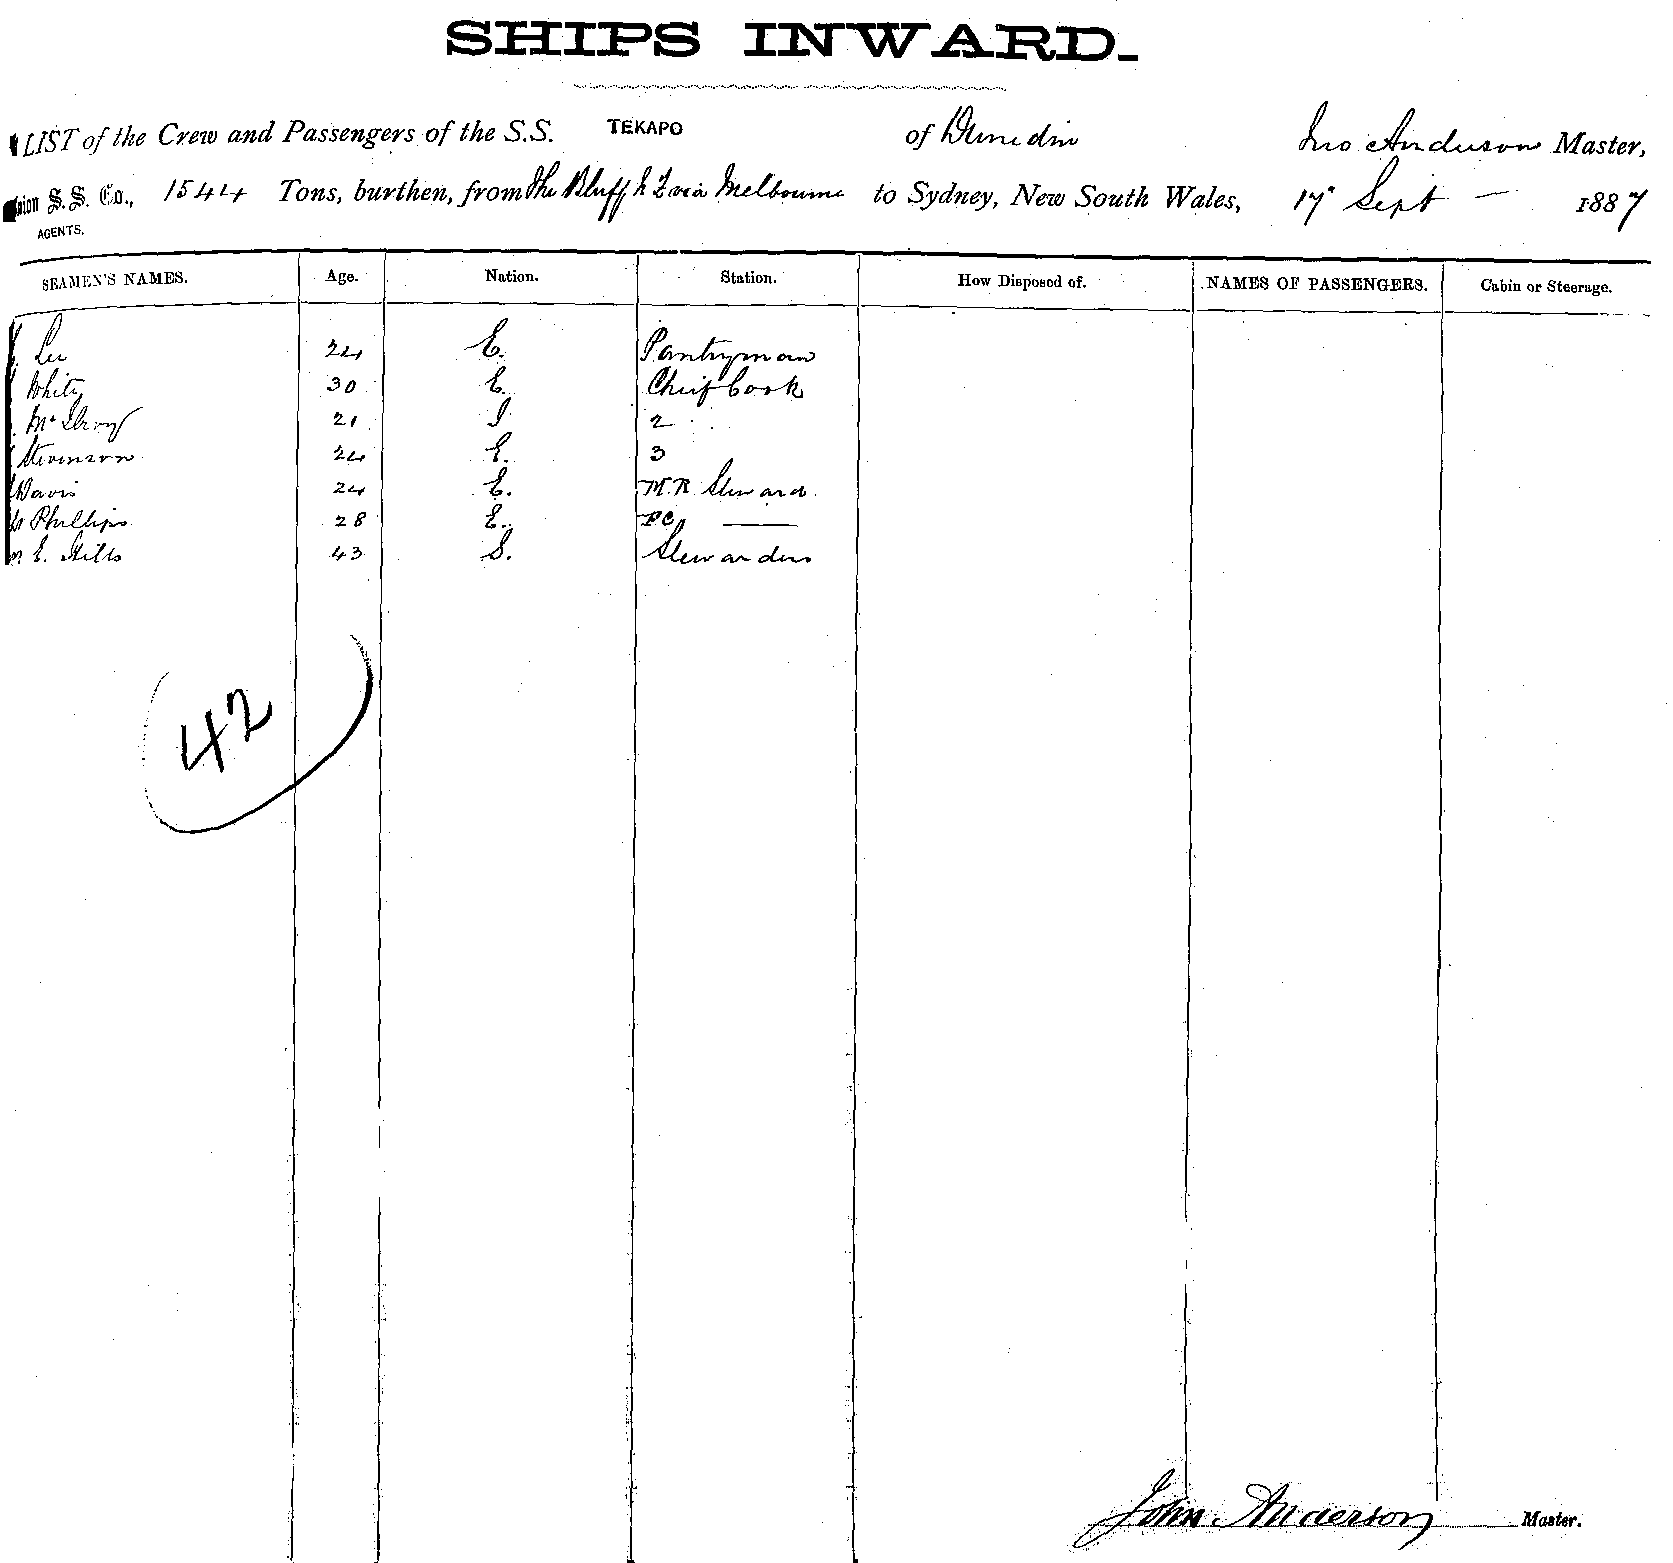 SHIPS INWARD.
LIST of the Crew and Passengers of the S.S. TEKAPO of Dunedin Jno Anderson Master,
S. S. Co., 1544 Tons, burthen, from The Bluff N Z via Melbourne to Sydney, New South Wales, 17 Sept 1887
AGENTS.
SEAMEN'S NAMES. Age. Nation. Station. How Disposed of. NAMES OF PASSENGERS. Cabin or Steerage.
Lee 24 E. Pantryman
White 30 E. Chief Cook
McIlroy 21 I 2
Stevenson 24 E. 3
Davis 24 E. M.R Steward
Phillips 28 E. FC ——
E. Hills 43 S. Stewardess
42
John Anderson Master.